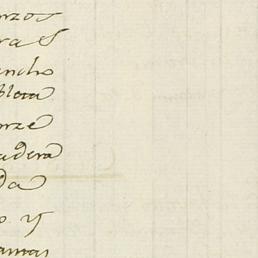 nzos
ra es
ancho
bleta
onze
adera
da
o. y
amas